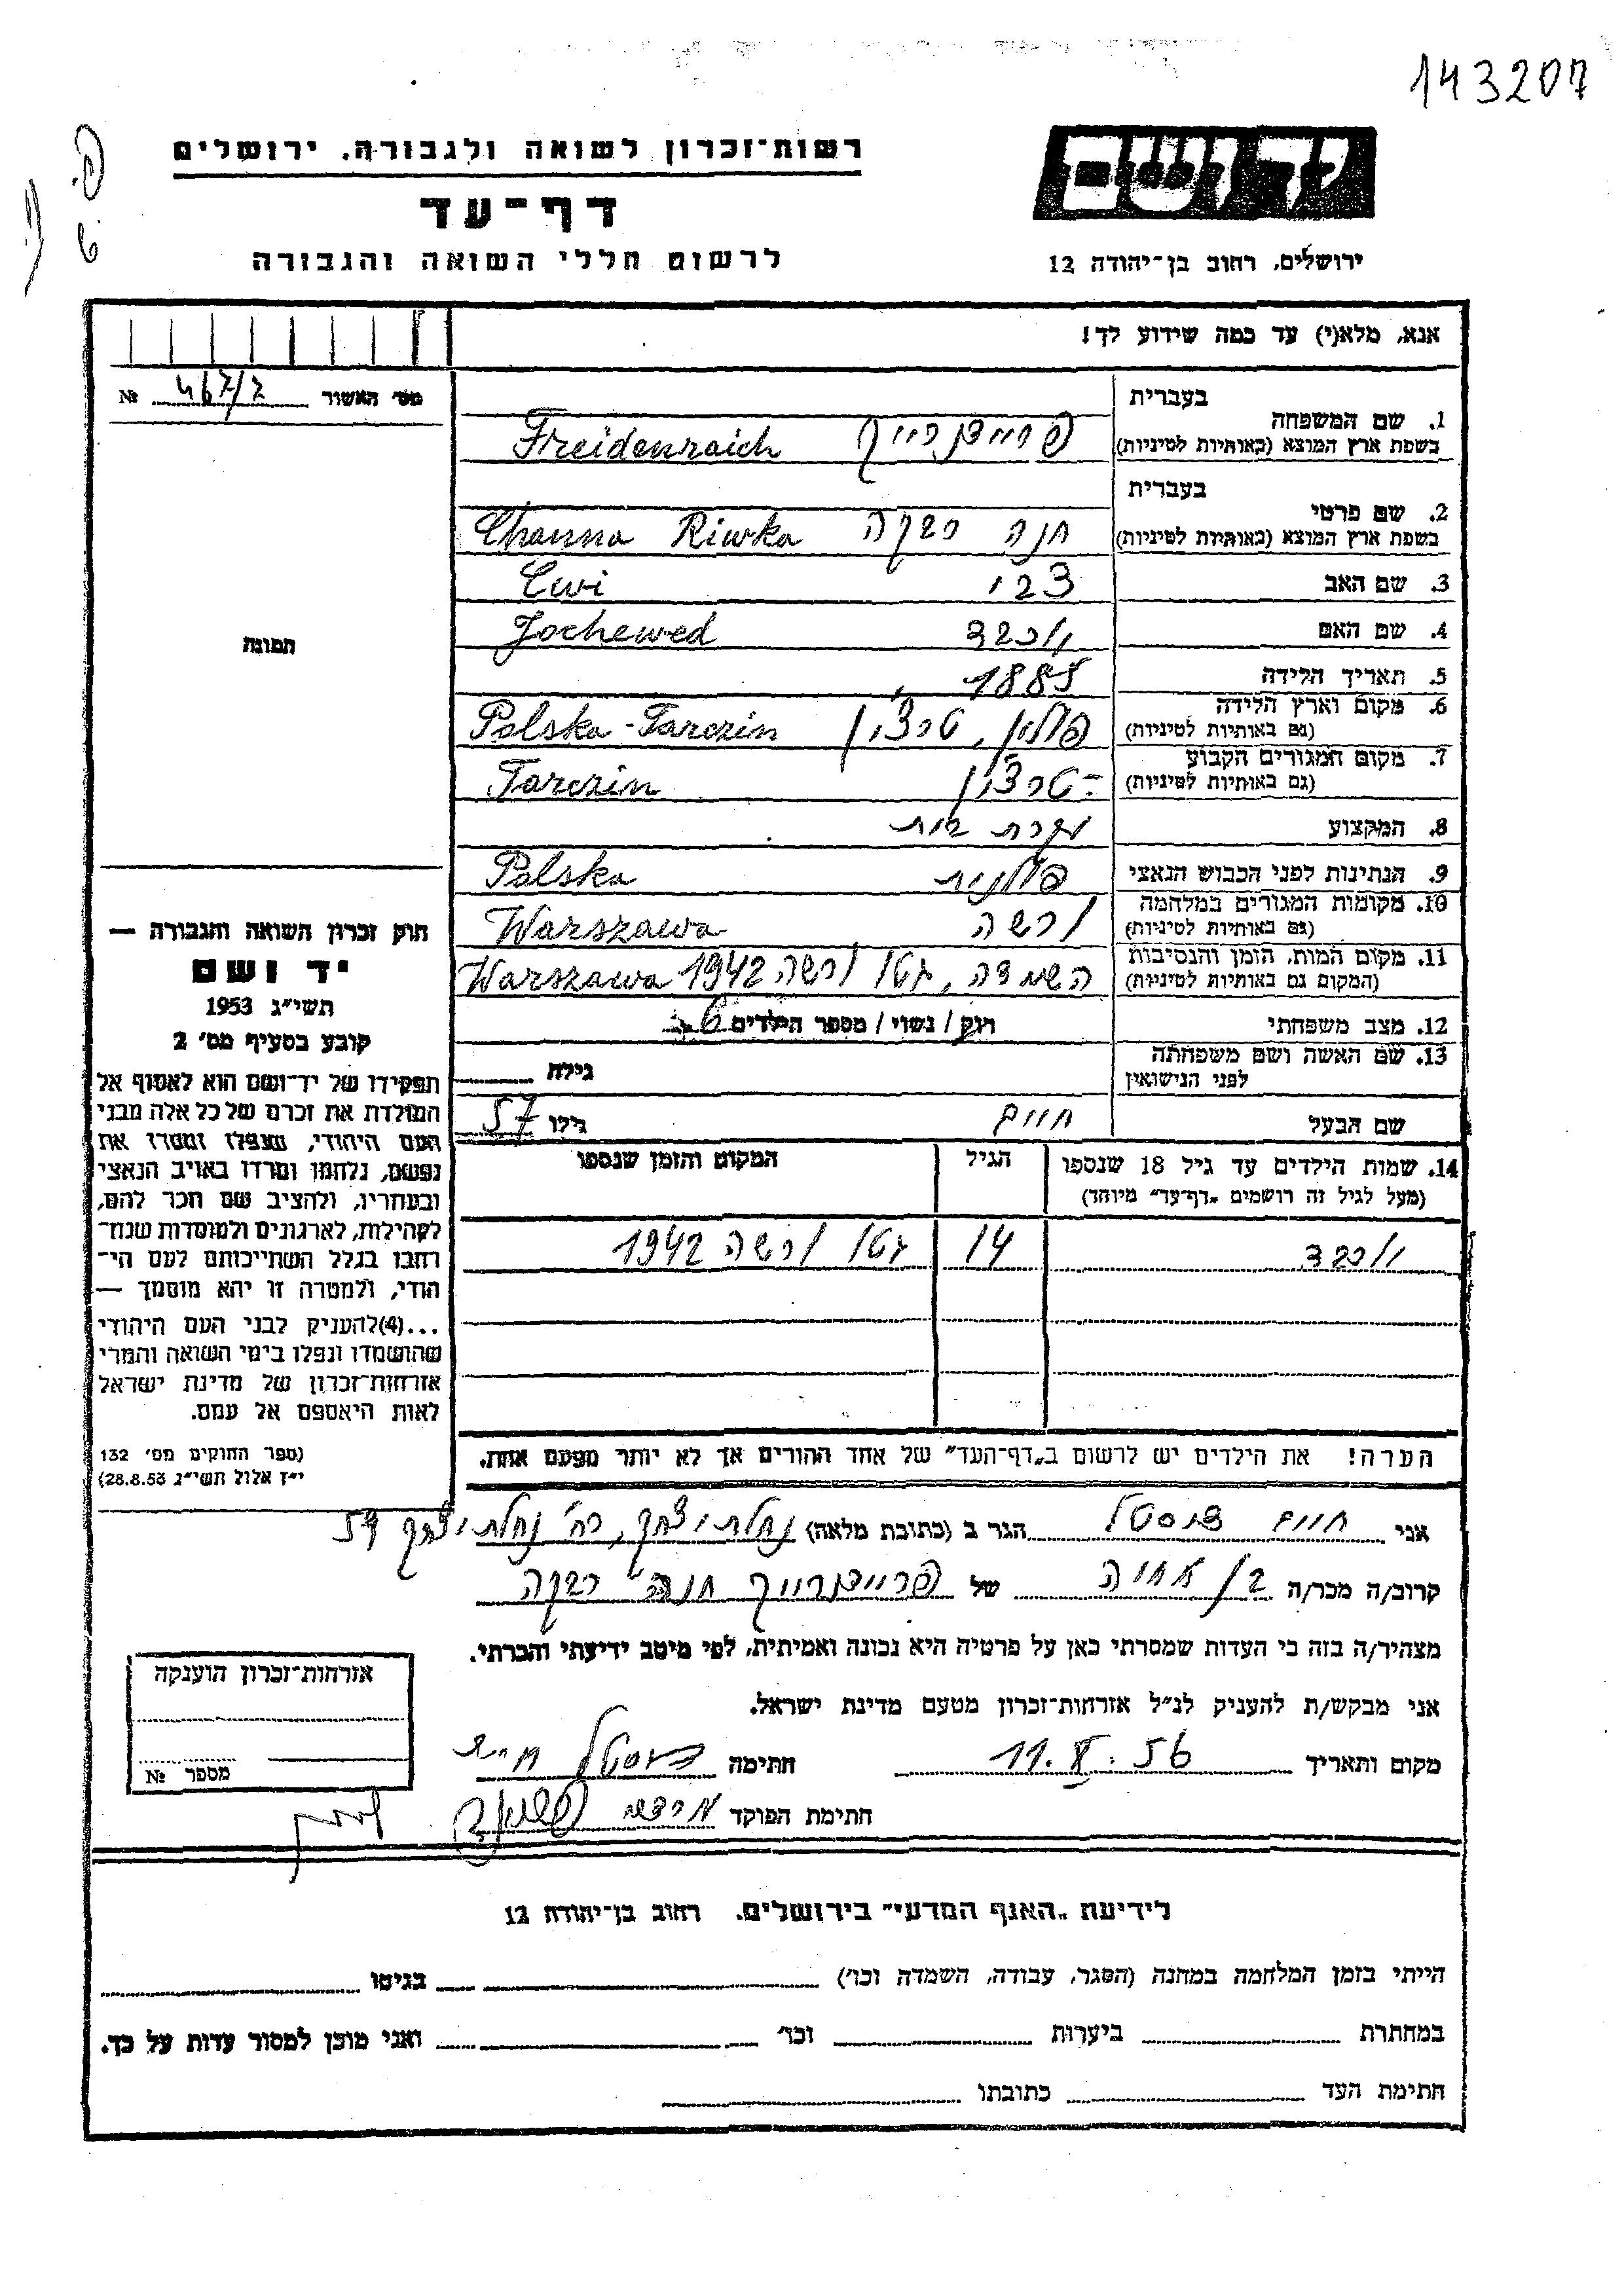 143207
יד ושם
רשות־זכרון לשואה ולגבורה, ירושלים
דף־עד
לרשום חללי השואה והגבורה
ירושלים, רחוב בן־יהודה 12
אנא, מלא(י) עד כמה שידוע לך!
מס׳ האשור 467/2 №
תמונה
חוק זכרון השואה והגבורה —
יד ושם
תשי״ג 1953
קובע בסעיף מס׳ 2
תפקידו של יד־ושם הוא לאסוף אל
המולדת את זכרם של כל אלה מבני
העם היהודי, שנפלו ומסרו את
נפשם, נלחמו ומרדו באויב הנאצי
ובעוזריו, ולהציב שם וזכר להם,
לקהילות, לארגונים ולמוסדות שנח־
רבו בגלל השתייכותם לעם הי־
הודי, ולמטרה זו יהא מוסמך —
...(4) להעניק לבני העם היהודי
שהושמדו ונפלו בימי השואה והמרי
אזרחות־זכרון של מדינת ישראל
לאות היאספם אל עמם.
(ספר החוקים מס׳ 132
י״ז אלול תשי״ג 28.8.53)
בעברית
1. שם המשפחה
בשפת ארץ המוצא (באותיות לטיניות) פריידנרייך Freidenraich
בעברית
2. שם פרטי
בשפת ארץ המוצא (באותיות לטיניות) חנה רבקה Channa Riwka
3. שם האב צבי Cwi
4. שם האם יוכבד Jochewed
5. תאריך הלידה 1885
6. מקום וארץ הלידה פולין, טרצ׳ין Polska - Tarczin
(גם באותיות לטיניות)
7. מקום המגורים הקבוע טרצ׳ין Tarczin
(גם באותיות לטיניות)
8. המקצוע עקרת בית
9. הנתינות לפני הכבוש הנאצי פולנית Polska
10. מקומות המגורים במלחמה ורשה Warszawa
(גם באותיות לטיניות)
11. מקום המות, הזמן והנסיבות השמדה, גטו ורשה 1942 Warszawa
(המקום גם באותיות לטיניות)
12. מצב משפחתי רווק / נשוי / מספר הילדים 6
13. שם האשה ושם משפחתה גילה
לפני הנישואין
שם הבעל חיים גילו 57
14. שמות הילדים עד גיל 18 שנספו הגיל המקום והזמן שנספו
(מעל לגיל זה רושמים „דף־עד״ מיוחד)
יוכבד 14 גטו ורשה 1942
הערה! את הילדים יש לרשום ב„דף־העד״ של אחד ההורים אך לא יותר מפעם אחת.
אני חיים הגר ב (כתובת מלאה) נחלת יצחק, רח׳ נחלת יצחק
קרוב/ה מכר/ה בן אחיה של פריידנרייך חנה רבקה
מצהיר/ה בזה כי העדות שמסרתי כאן על פרטיה היא נכונה ואמיתית, לפי מיטב ידיעתי והכרתי.
אני מבקש/ת להעניק לנ״ל אזרחות־זכרון מטעם מדינת ישראל.
מקום ותאריך 56 חתימה
חתימת הפוקד
אזרחות־זכרון הוענקה
מספר №
לידיעת „האגף המדעי״ בירושלים. רחוב בן־יהודה 12
הייתי בזמן המלחמה במחנה (הסגר, עבודה, השמדה וכו׳) בגיטו
במחתרת ביערות וכו׳ ואני מוכן למסור עדות על כך.
חתימת העד כתובתו